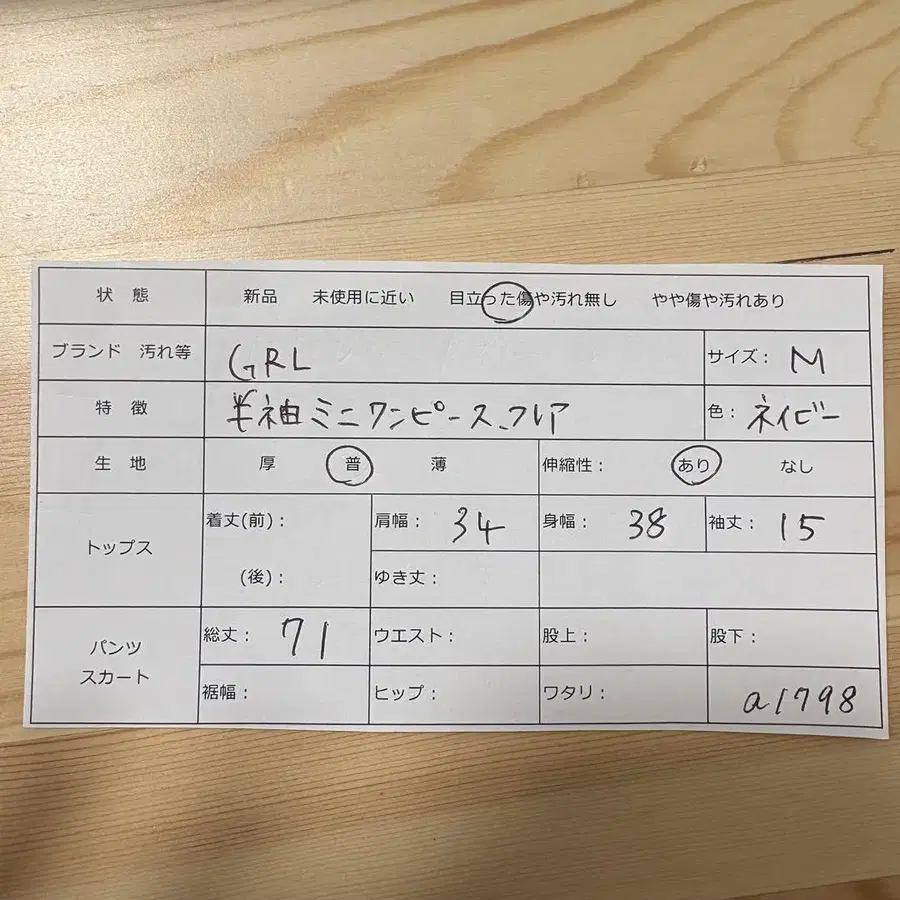 状 態 新品 未使用に近い 目立った傷や汚れ無し やや傷や汚れあり
ブランド 汚れ等 GRL サイズ： M
特 徴 半袖ミニワンピース、フレア 色： ネイビー
生 地 厚 普 薄 伸縮性： あり なし
トップス 着丈(前)： 肩幅： 34 身幅： 38 袖丈： 15
(後)： ゆき丈：
パンツ スカート 総丈： 71 ウエスト： 股上： 股下：
裾幅： ヒップ： ワタリ： a1798